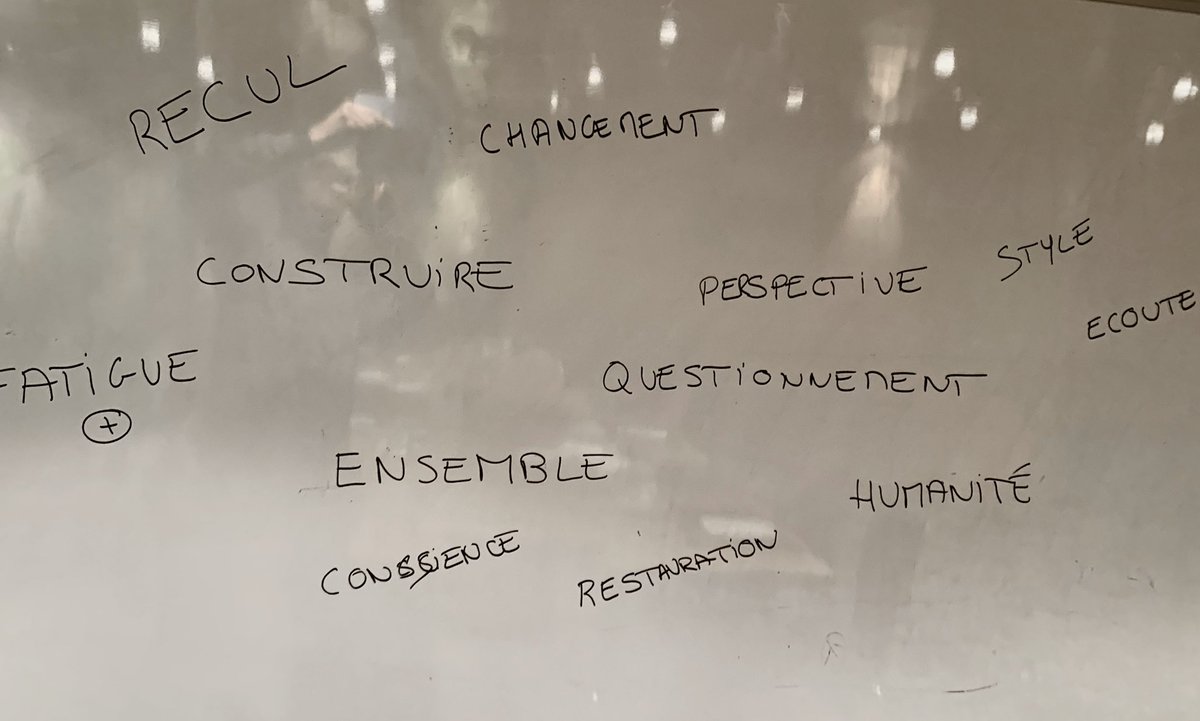 RECUL
CHANGEMENT
STYLE
CONSTRUIRE
PERSPECTIVE
ECOUTE
FATIGUE
+
QUESTIONNEMENT
ENSEMBLE
HUMANITÉ
CONSSIENCE
RESTAURATION